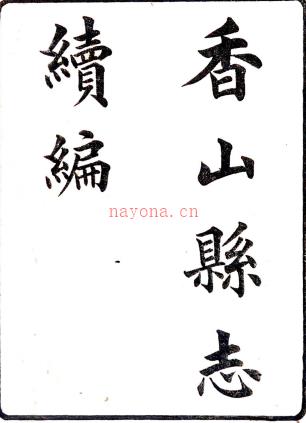 香山縣志
續編
nayona.cn